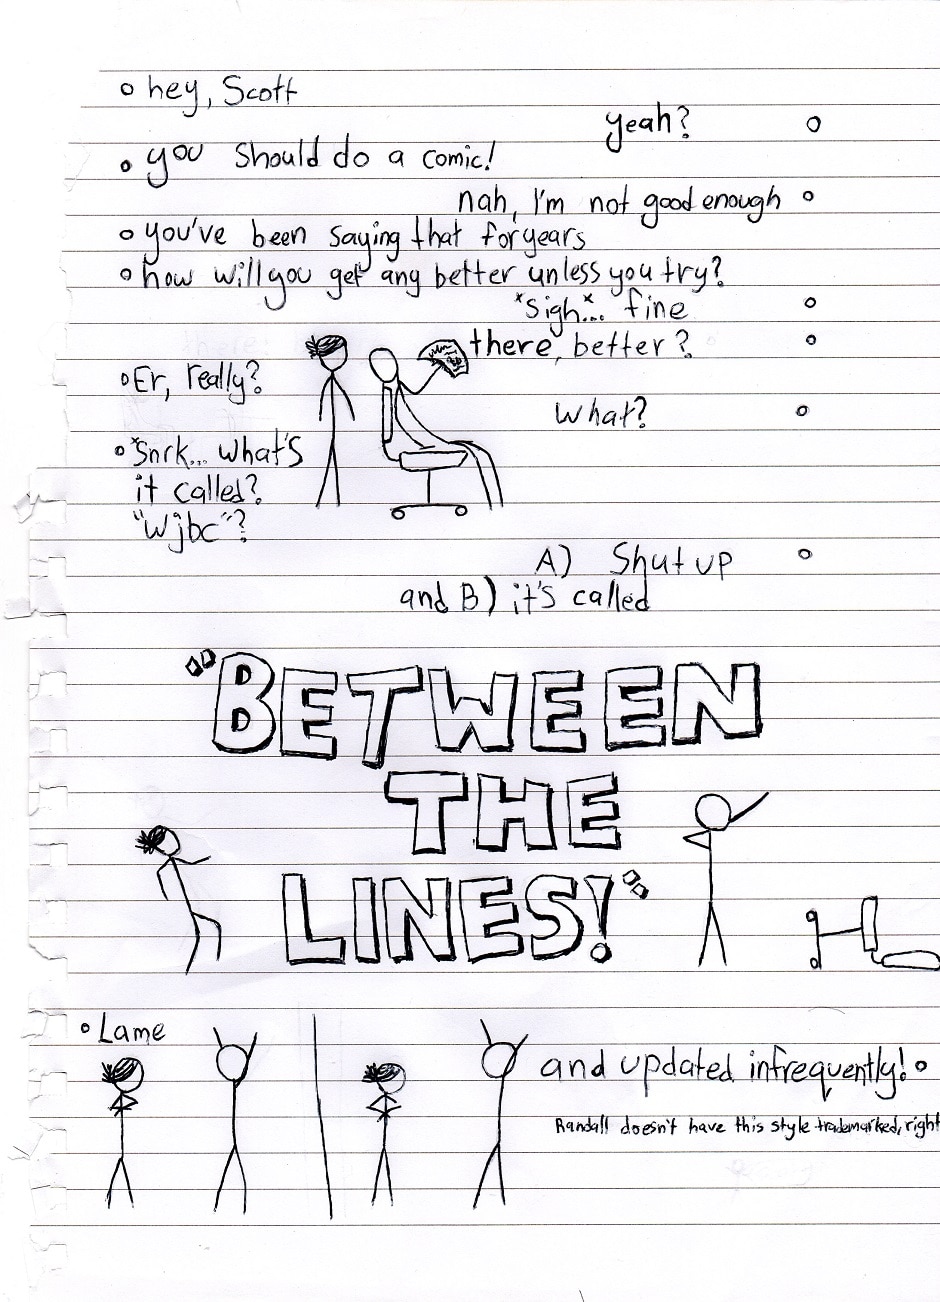 hey, Scott
yeah?
you should do a comic!
nah, I'm not good enough
you've been saying that for years
how will you get any better unless you try?
*sigh*... fine
there, better?
Er, really?
What?
*Snrk... what's
it called?
"wjbc"?
A) Shut up
and B) it's called
"BETWEEN
THE
LINES!"
Lame
and updated infrequently!
Randall doesn't have this style trademarked, right